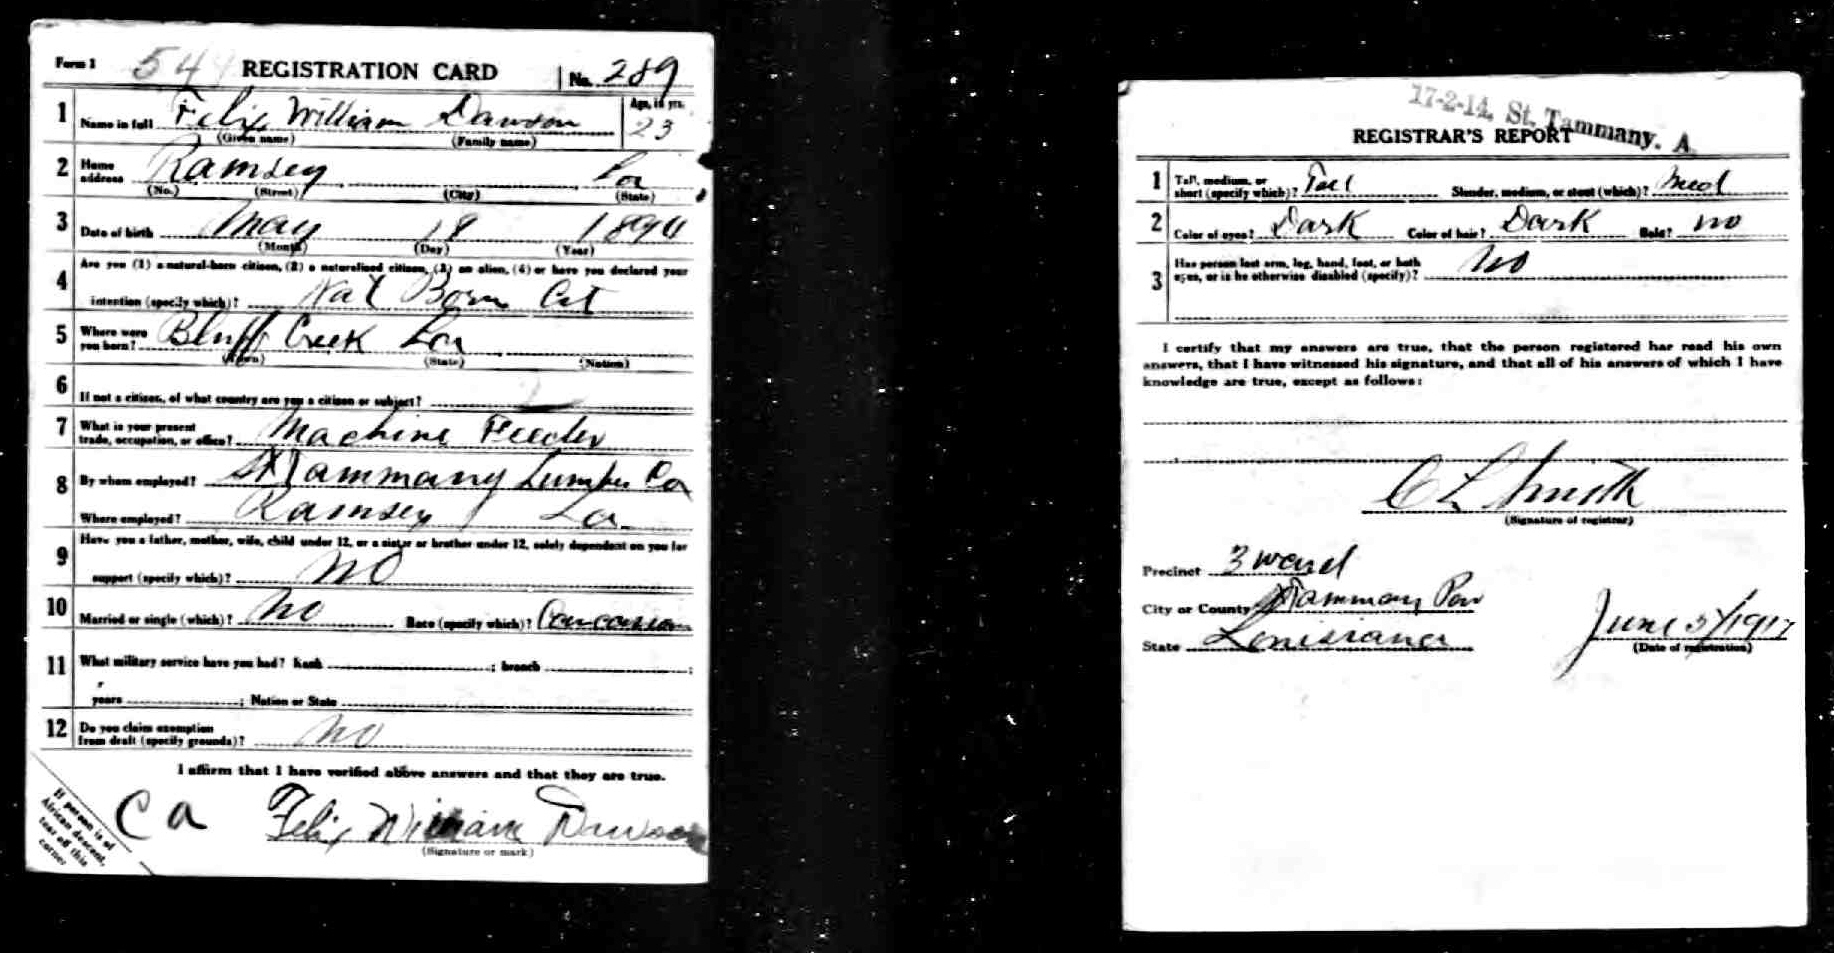 Form 1 54 REGISTRATION CARD No. 289
1 Name in full Felix William Dawson Age, in yrs. 23
(Given name) (Family name)
2 Home address Ramsey La
(No.) (Street) (City) (State)
3 Date of birth May 18 1894
(Month) (Day) (Year)
4 Are you (1) a natural-born citizen, (2) a naturalized citizen, (3) an alien, (4) or have you declared your
intention (specify which)? Nat Born Cit
5 Where were you born? Bluff Creek Lou
(Town) (State) (Nation)
6 If not a citizen, of what country are you a citizen or subject?
7 What is your present trade, occupation, or office? Machine Feeder
8 By whom employed? St Tammany Lumber Co
Where employed? Ramsey La
9 Have you a father, mother, wife, child under 12, or a sister or brother under 12, solely dependent on you for
support (specify which)? No
10 Married or single (which)? No Race (specify which)? Caucasian
11 What military service have you had? Rank ; branch ;
years ; Nation or State
12 Do you claim exemption from draft (specify grounds)? No
I affirm that I have verified above answers and that they are true.
Ca Felix William Dawson
(Signature or mark)
If person is of
African descent,
tear off this
corner
17-2-14. St. Tammany. A
REGISTRAR'S REPORT
1 Tall, medium, or short (specify which)? Tall Slender, medium, or stout (which)? Med
2 Color of eyes? Dark Color of hair? Dark Bald? no
3 Has person lost arm, leg, hand, foot, or both
eyes, or is he otherwise disabled (specify)? No
I certify that my answers are true, that the person registered har read his own
answers, that I have witnessed his signature, and that all of his answers of which I have
knowledge are true, except as follows:
C L Smith
(Signature of registrar)
Precinct 3 ward
City or County St Tammany Par
State Louisiana June 5/1917
(Date of registration)